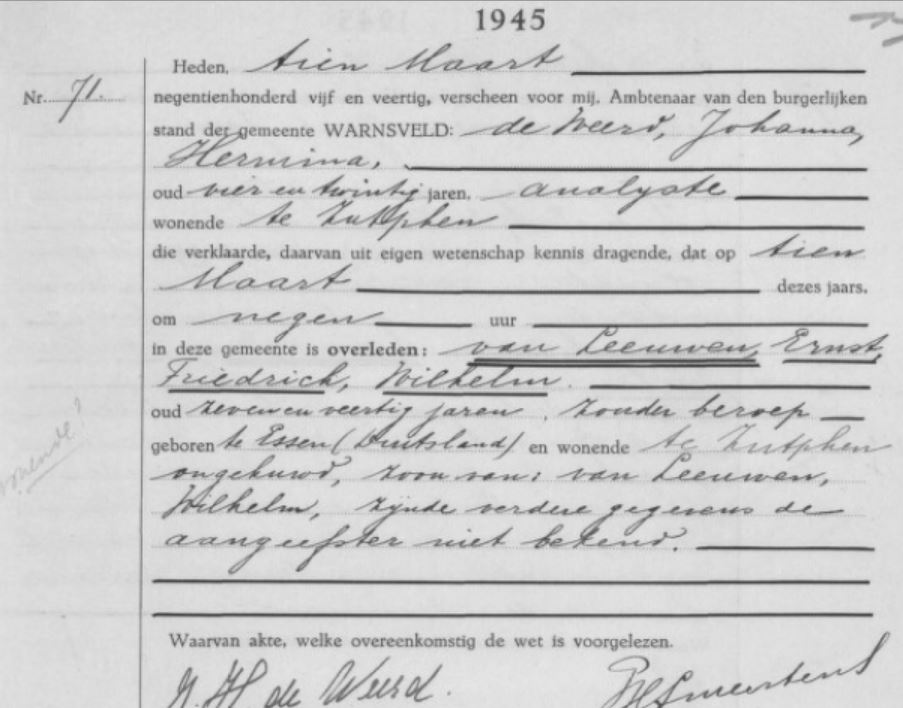 1945
Heden, tien Maart
Nr. 71. negentienhonderd vijf en veertig, verscheen voor mij, Ambtenaar van den burgerlijken
stand der gemeente WARNSVELD: de Weerd, Johanna,
Hermina,
oud vier en twintig jaren, analyste
wonende te Zutphen
die verklaarde, daarvan uit eigen wetenschap kennis dragende, dat op tien
Maart dezes jaars,
om negen uur
in deze gemeente is overleden: van Leeuwen, Ernst,
Friedrich, Wilhelm.
oud zeven en veertig jaren, zonder beroep
geboren te Essen (Duitsland) en wonende te Zutphen
wonende?
ongehuwd, zoon van: van Leeuwen,
Wilhelm, zijnde verdere gegevens de
aangeefster niet bekend.
Waarvan akte, welke overeenkomstig de wet is voorgelezen.
J. H. de Weerd.